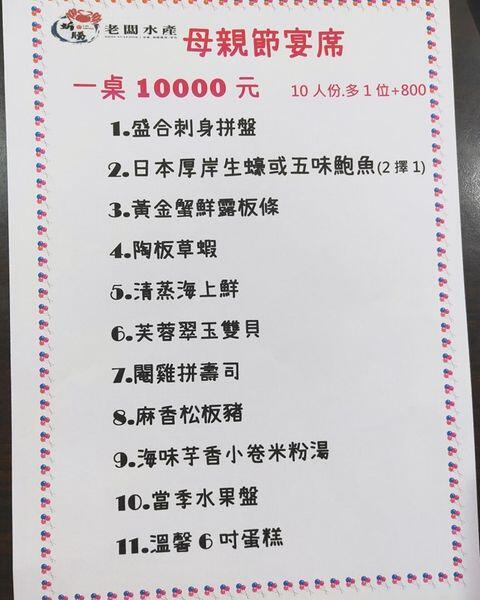 老闆水產
母親節宴席
一桌 10000 元 10 人份.多 1 位+800
1.盛合刺身拼盤
2.日本厚岸生蠔或五味鮑魚(2 擇 1)
3.黃金蟹鮮露板條
4.陶板草蝦
5.清蒸海上鮮
6.芙蓉翠玉雙貝
7.閹雞拼壽司
8.麻香松板豬
9.海味芋香小卷米粉湯
10.當季水果盤
11.溫馨 6 吋蛋糕